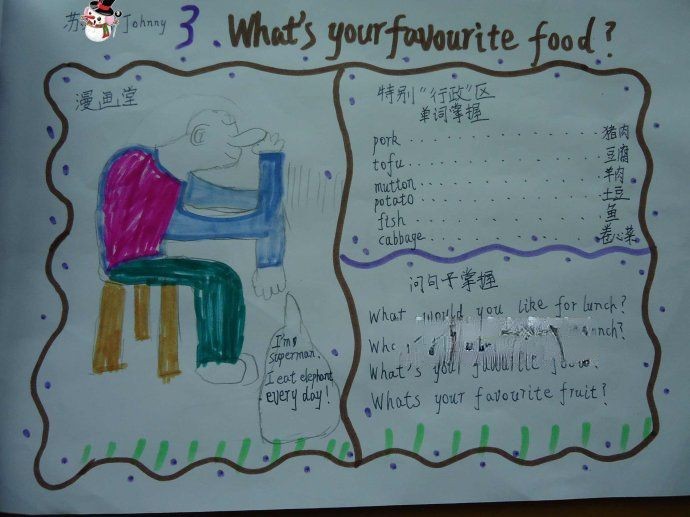 苏 Johnny
3. What's your favourite food?
漫画堂
I'm
superman.
I eat elephant
every day!
特别“行政”区
单词掌握
pork 猪肉
tofu 豆腐
mutton 羊肉
potato 土豆
fish 鱼
cabbage 卷心菜
问句子掌握
What would you like for lunch?
What's your favourite
Whats your favourite fruit?